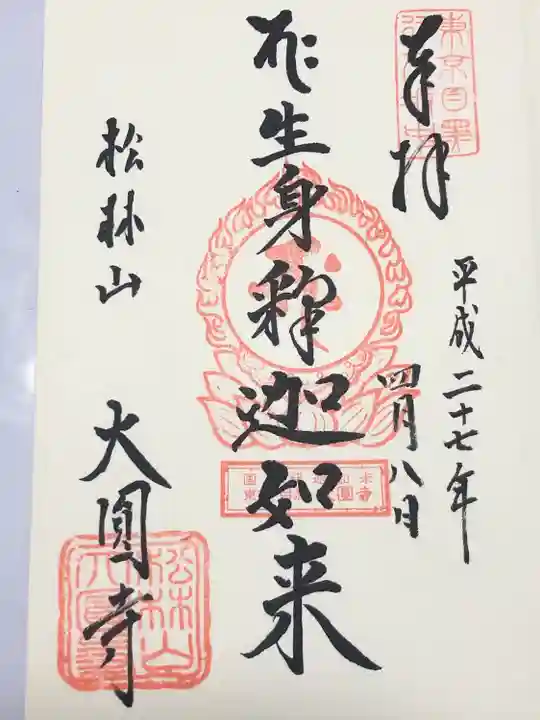 奉拝
平成二十七年
四月八日
生身釋迦如来
松林山
大圓寺
松林山
大圓寺